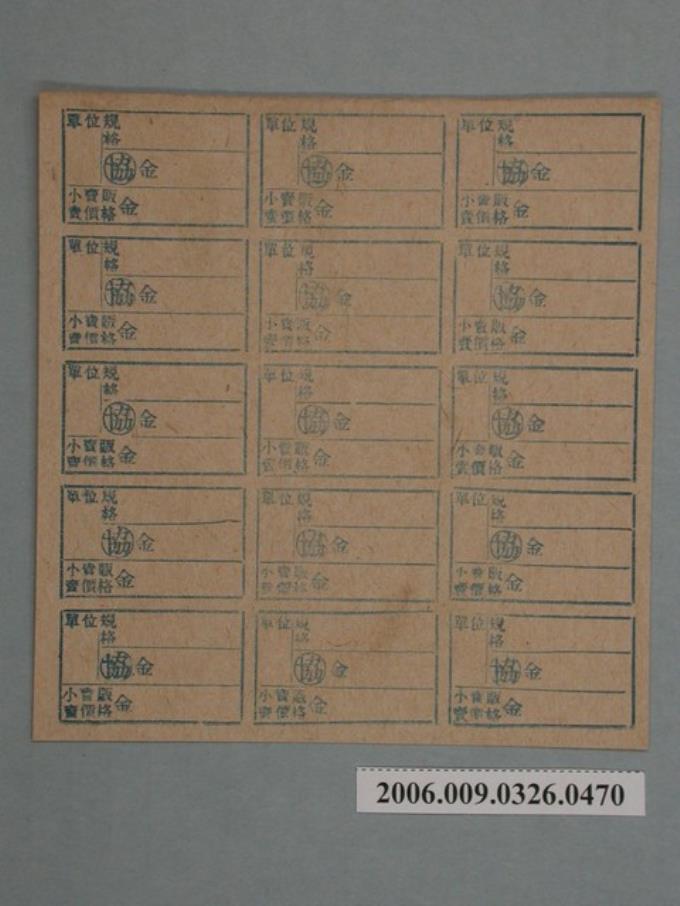 單位 規格
協 金
小賣販賣價格 金
單位 規格
協 金
小賣販賣價格 金
單位 規格
協 金
小賣販賣價格 金
單位 規格
協 金
小賣販賣價格 金
單位 規格
協 金
小賣販賣價格 金
單位 規格
協 金
小賣販賣價格 金
單位 規格
協 金
小賣販賣價格 金
單位 規格
協 金
小賣販賣價格 金
單位 規格
協 金
小賣販賣價格 金
單位 規格
協 金
小賣販賣價格 金
單位 規格
協 金
小賣販賣價格 金
單位 規格
協 金
小賣販賣價格 金
單位 規格
協 金
小賣販賣價格 金
單位 規格
協 金
小賣販賣價格 金
單位 規格
協 金
小賣販賣價格 金
2006.009.0326.0470